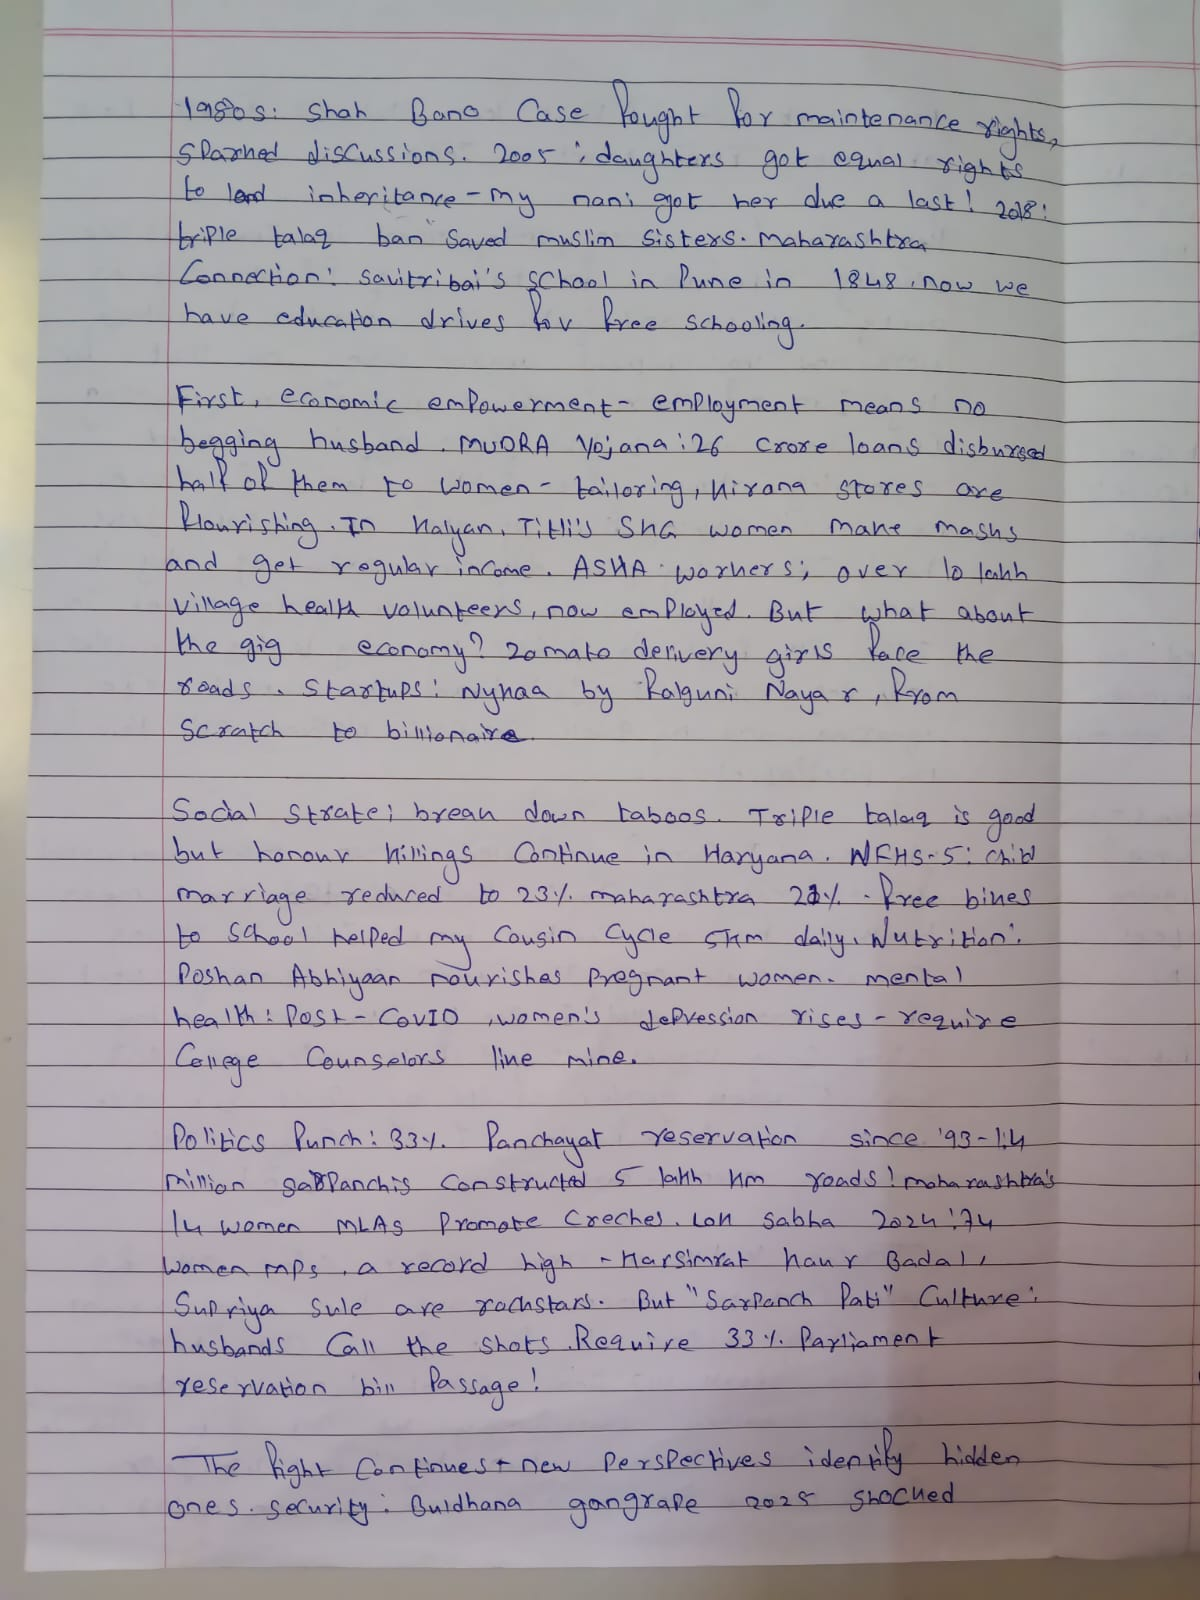 1980s: Shah Bano Case fought for maintenance rights,
sparked discussions. 2005: daughters got equal rights
to land inheritance - my nani got her due a last! 2018:
triple talaq ban saved muslim sisters. Maharashtra
Connection: Savitribai's School in Pune in 1848, now we
have education drives for free schooling.
First, economic empowerment - employment means no
begging husband. MUDRA Yojana: 26 crore loans disbursed
half of them to women - tailoring, kirana stores are
flourishing. In Kalyan, Titli's SHG women make masks
and get regular income. ASHA workers; over 10 lakh
village health volunteers, now employed. But what about
the gig economy? Zomato delivery girls face the
roads. Startups: Nykaa by Falguni Nayar, from
scratch to billionaire.
Social strate; break down taboos. Triple talaq is good
but honour killings continue in Haryana. NFHS-5: child
marriage reduced to 23% maharashtra 21%. free bikes
to school helped my cousin cycle 5km daily. Nutrition:
Poshan Abhiyaan nourishes pregnant women. mental
health: Post-COVID, women's depression rises - require
College Counselors like mine.
Politics Punch: 33% Panchayat reservation since '93 - 1.4
million sarpanchis constructed 5 lakh km roads! maharashtra's
14 women MLAs promote creches. Lok Sabha 2024: 74
women MPs, a record high - Harsimrat kaur Badal,
Supriya Sule are rockstars. But "Sarpanch Pati" Culture:
husbands call the shots. Require 33% Parliament
reservation bill Passage!
The fight continues - new perspectives identify hidden
ones. security: Buldhana gangrape 2025 shocked